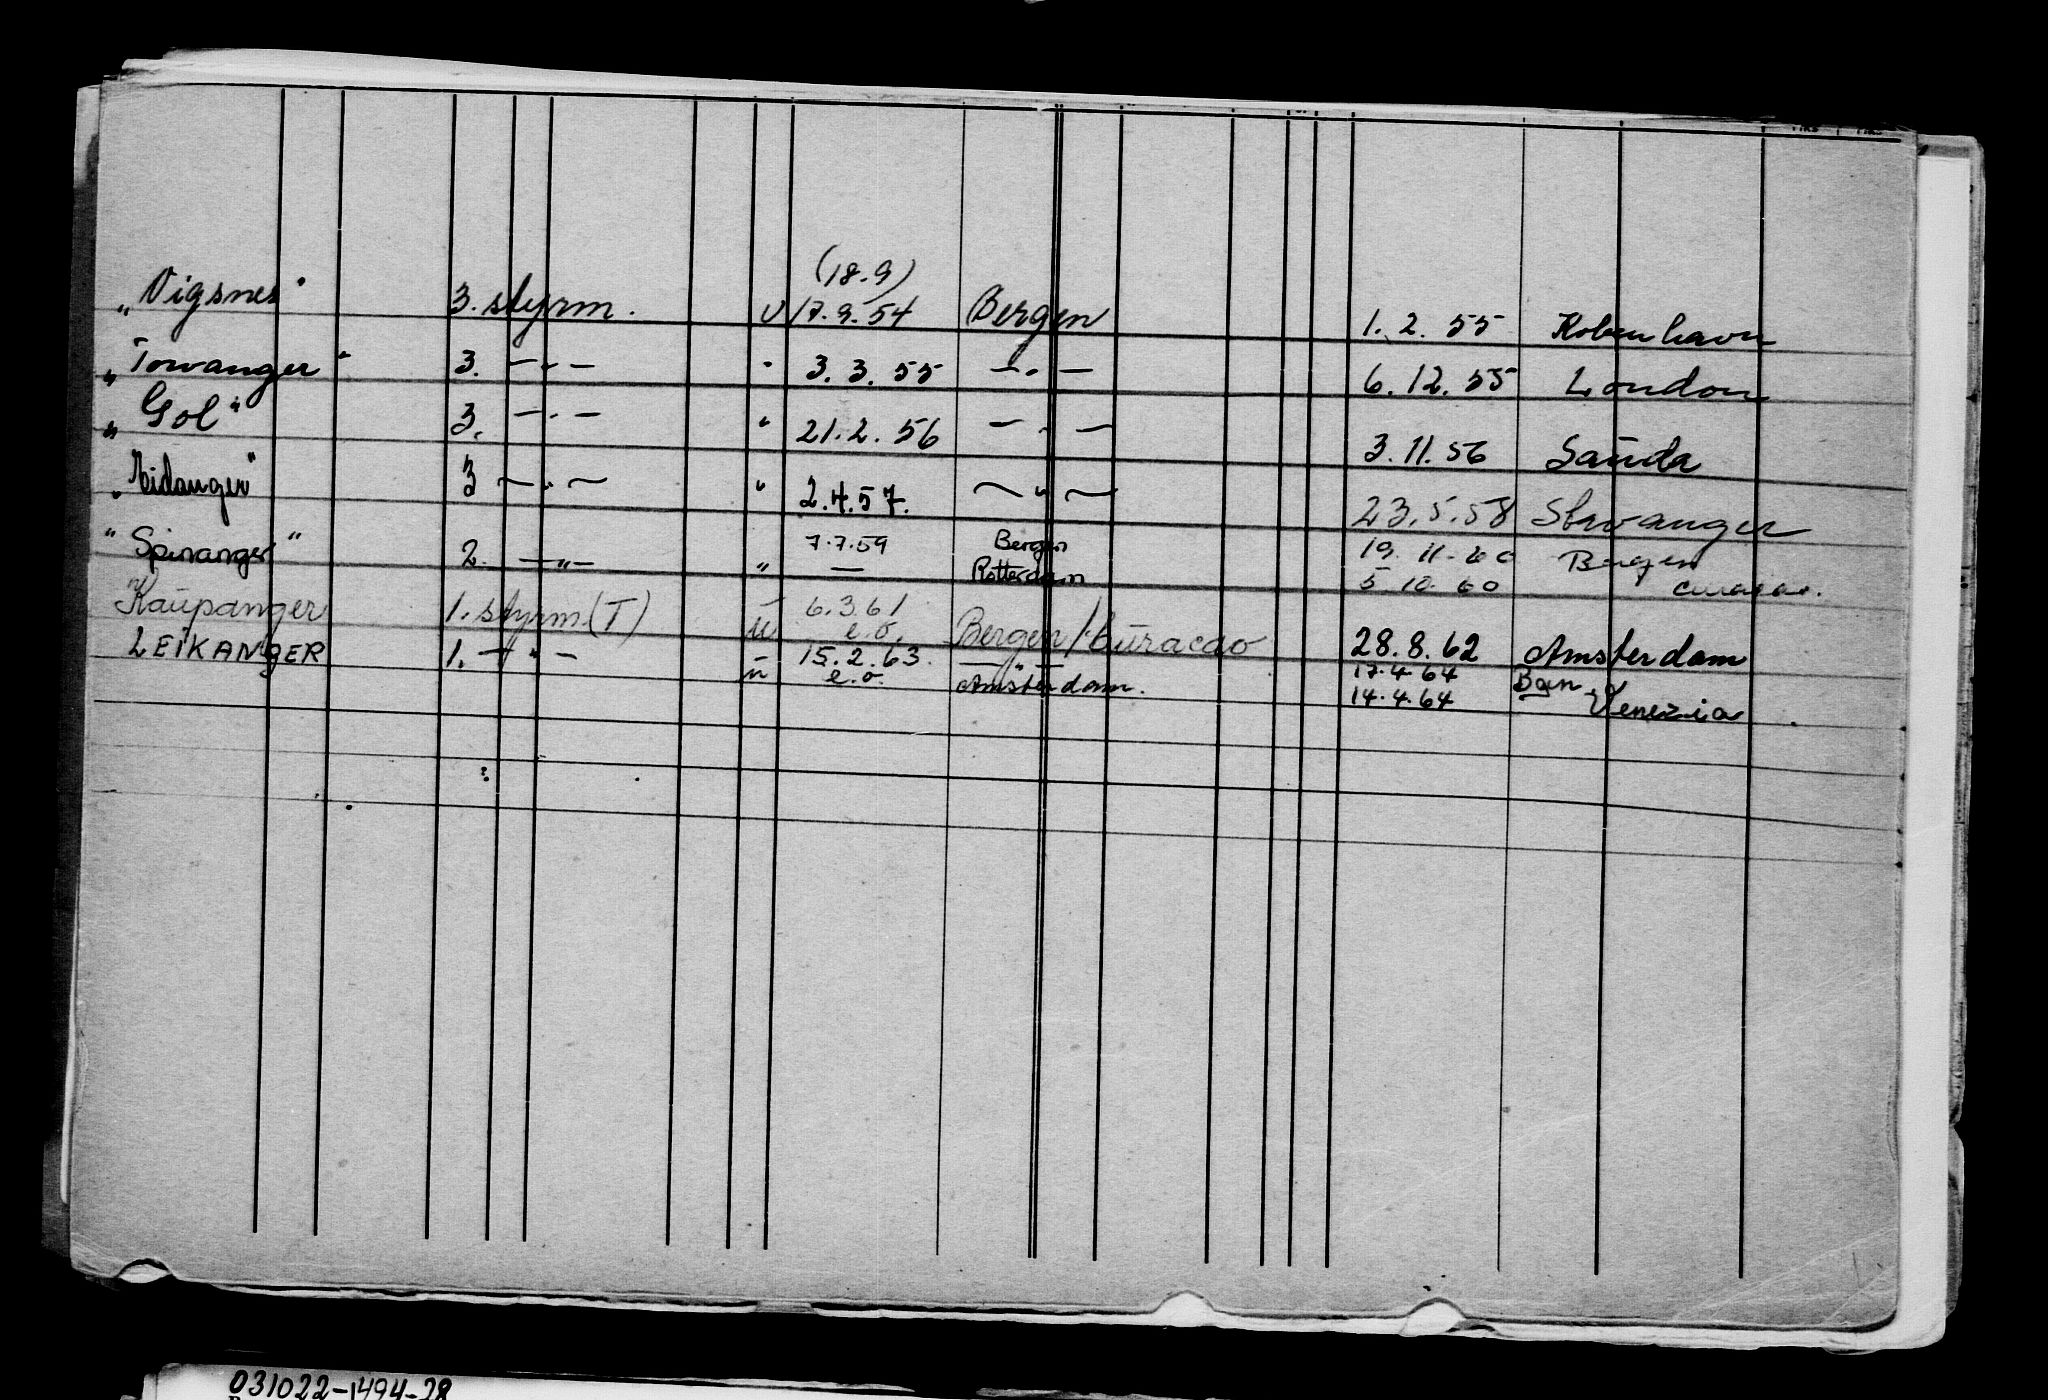 (18.9)
„Vigsnes" 3. styrm. u 17.9.54 Bergen 1.2.55 Kobenhavn
„Torvanger" 3. —"— " 3.3.55 —"— 6.12.55 London
„Gol" 3. —"— " 21.2.56 —"— 3.11.56 Sauda
„Eidanger" 3 —"— " 2.4.57. —"— 23.5.58 Stavanger
"Spinanger" 2. —"— " 7.7.59 Bergen 19.11.60 Bergen
— Rotterdam 5.10.60 Curacao.
Kaupanger 1. styrm (T) — 6.3.61 Bergen/Curacao 28.8.62 Amsterdam
u e.o.
LEIKANGER 1. —"— — 15.2.63. —"— 17.4.64 Bgen
u e.o. Amsterdam. 14.4.64 Venezia.
031022-1494-28